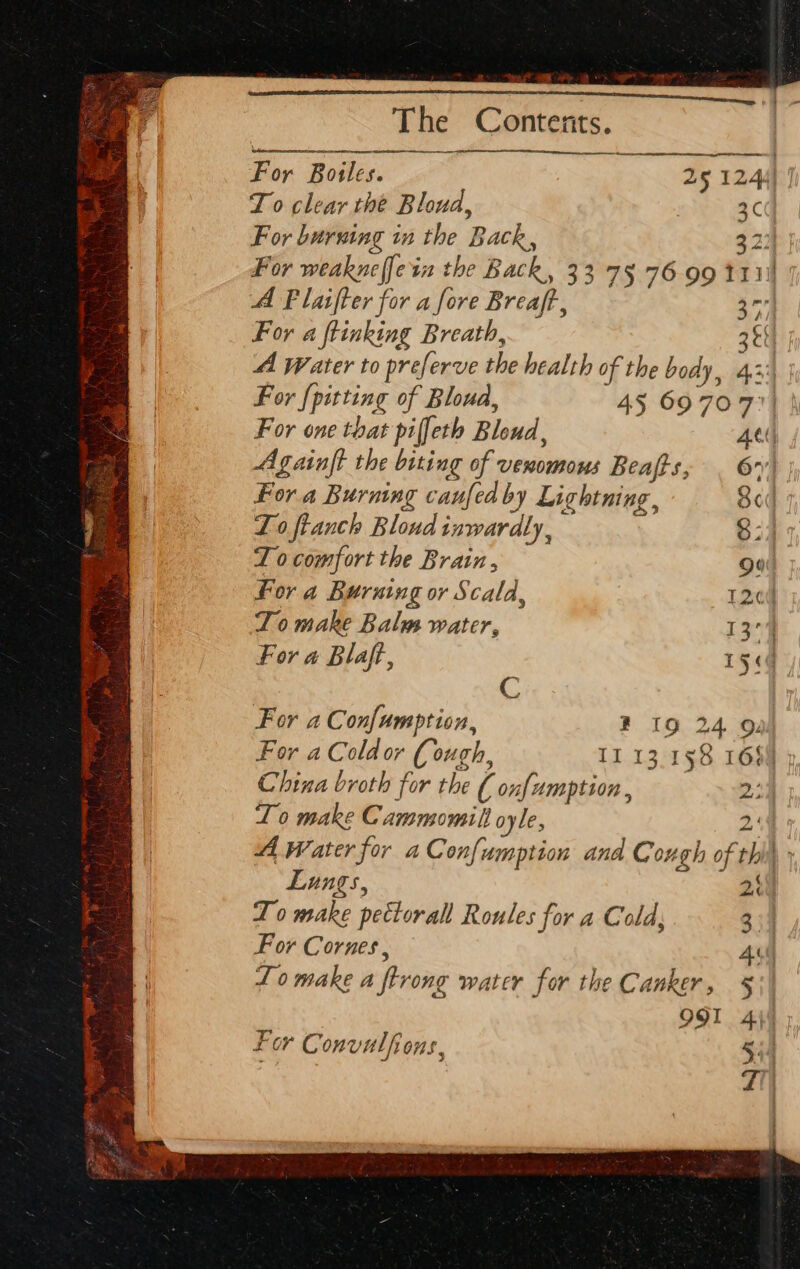 The Contents.
For Boiles. 25 124
To clear the Bloud, 30
For burning in the Back, 32
For weakneſſe in the Back, 33 75 76 99 111
A Plaiſter for a ſore Breaſt, 37
For a ſtinking Breath, 38
A Water to preſerve the health of the body, 43
For ſpitting of Bloud, 45 69 70 7
For one that piſſeth Bloud, 46
Againſt the biting of venomous Beaſts, 67
For a Burning cauſed by Lightning, 80
To ſtanch Bloud inwardly, 82
To comfort the Brain, 90
For a Burning or Scald, 120
To make Balm water, 13
For a Blaſt, 15
C
For a Conſumption, 19 24 9
For a Cold or Cough, 11 13 158 168
China broth for the Conſumption, 2
To make Cammomill oyle, 2
A Water for a Conſumption and Cough of th
Lungs, 2
To make pectorall Roules for a Cold, 3
For Cornes, 4
To make a ſtrong water for the Canker, 5
991 4
For Convulſions, 5